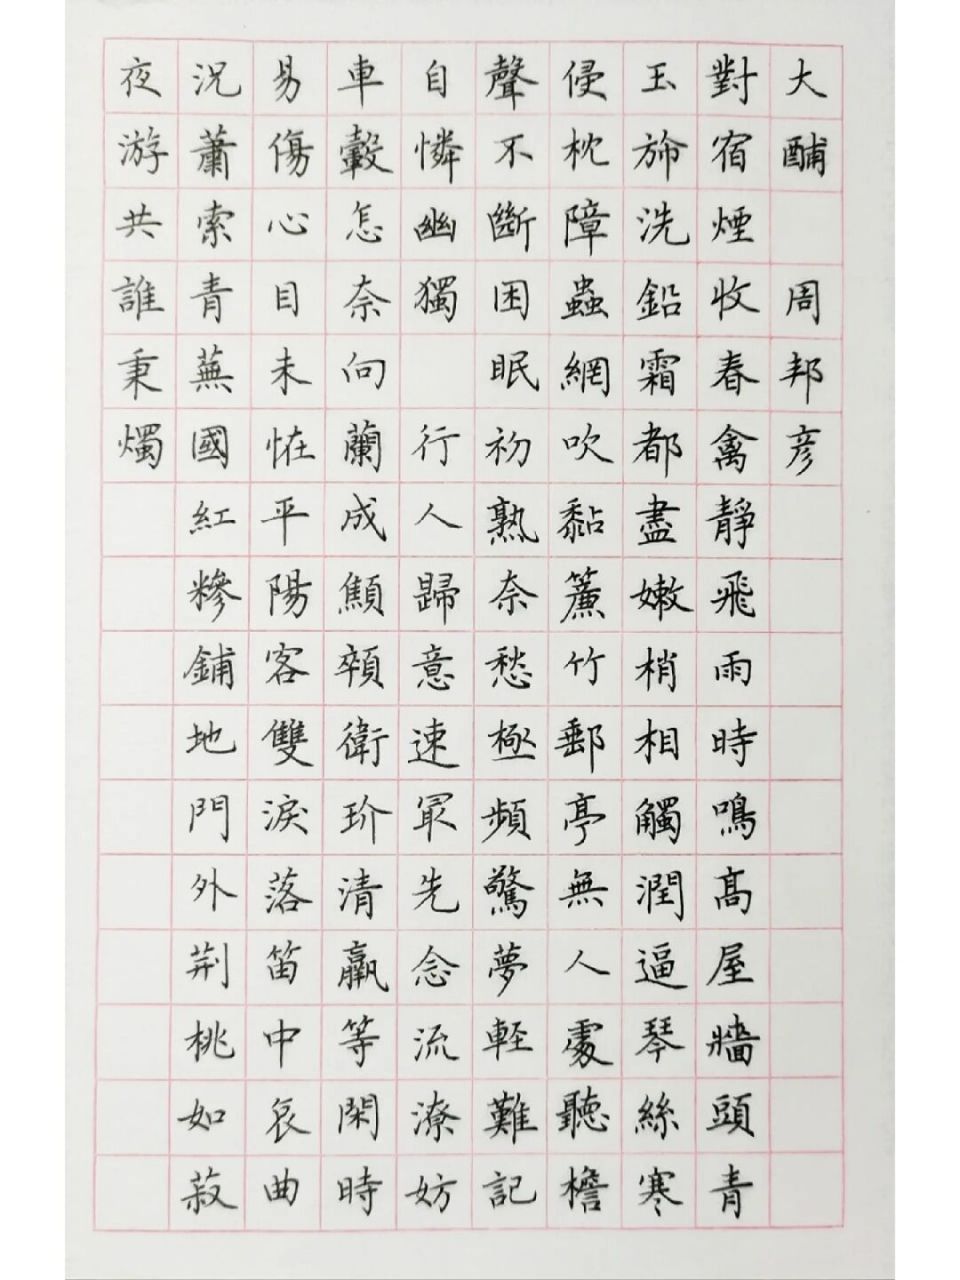 大酺 周邦彥
對宿煙收春禽靜飛雨時鳴髙屋牆頭青
玉旆洗鉛霜都盡嫩梢相觸潤逼琴絲寒
侵枕障蟲網吹黏簾竹郵亭無人處聽檐
聲不斷困眠初熟奈愁極頻驚夢軽難記
自憐幽獨 行人歸意速冣先念流潦妨
車轂怎奈向蘭成顦顇衛玠清羸等閑時
易傷心目未恠平陽客雙淚落笛中哀曲
況蕭索青蕪國紅糝鋪地門外荆桃如菽
夜游共誰秉燭